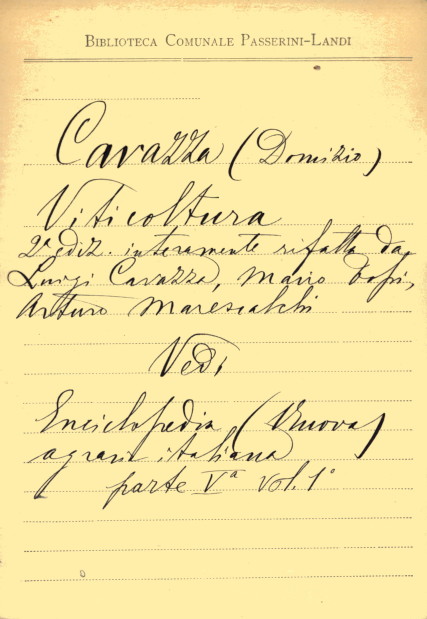 BIBLIOTECA COMUNALE PASSERINI-LANDI
Cavazza (Domizio)
Viticoltura
2ª ediz. interamente rifatta da
Luigi Cavazza, Mario
Arturo Marescalchi
Vedi
Enciclopedia (Nuova)
agraria italiana
parte Vª Vol. 1°